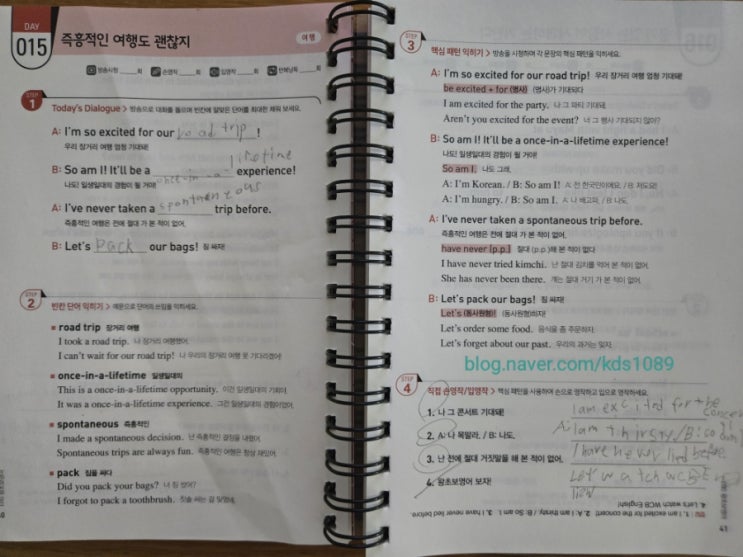 DAY
015
즉흥적인 여행도 괜찮지
여행
방송시청 ____회
손영작 ____회
입영작 ____회
반복낭독 ____회
STEP 1
Today's Dialogue > 방송으로 대화를 들으며 빈칸에 알맞은 단어를 최대한 채워 보세요.
A: I'm so excited for our road trip!
우리 장거리 여행 엄청 기대돼!
B: So am I! It'll be a once-in-a-lifetime experience!
나도! 일생일대의 경험이 될 거야!
A: I've never taken a spontaneous trip before.
즉흥적인 여행은 전에 절대 가 본 적이 없어.
B: Let's pack our bags! 짐 싸자!
STEP 2
빈칸 단어 익히기 > 예문으로 단어의 쓰임을 익히세요.
road trip 장거리 여행
I took a road trip. 나 장거리 여행했어.
I can't wait for our road trip! 나 우리의 장거리 여행 못 기다리겠어!
once-in-a-lifetime 일생일대의
This is a once-in-a-lifetime opportunity. 이건 일생일대의 기회야.
It was a once-in-a-lifetime experience. 그건 일생일대의 경험이었어.
spontaneous 즉흥적인
I made a spontaneous decision. 난 즉흥적인 결정을 내렸어.
Spontaneous trips are always fun. 즉흥적인 여행은 항상 재밌어.
pack 짐을 싸다
Did you pack your bags? 너 짐 쌌어?
I forgot to pack a toothbrush. 칫솔 싸는 걸 잊었네.
STEP 3
핵심 패턴 익히기 > 방송을 시청하며 각 문장의 핵심 패턴을 익히세요.
A: I'm so excited for our road trip! 우리 장거리 여행 엄청 기대돼!
be excited + for (명사) (명사)가 기대되다
I am excited for the party. 나 그 파티 기대돼.
Aren't you excited for the event? 너 그 행사 기대되지 않아?
B: So am I! It'll be a once-in-a-lifetime experience!
나도! 일생일대의 경험이 될 거야!
So am I. 나도 그래.
A: I'm Korean. / B: So am I! A: 전 한국인이에요. / B: 저도요!
A: I'm hungry. / B: So am I. A: 나 배고파. / B: 나도.
A: I've never taken a spontaneous trip before.
즉흥적인 여행은 전에 절대 가 본 적이 없어.
have never (p.p.) 절대 (p.p.)해 본 적이 없다
I have never tried kimchi. 난 절대 김치를 먹어 본 적이 없어.
She has never been there. 걔는 절대 거기 가 본 적이 없어.
B: Let's pack our bags! 짐 싸자!
Let's (동사원형)! (동사원형)하자!
Let's order some food. 음식을 좀 주문하자.
Let's forget about our past. 우리의 과거는 잊자.
blog.naver.com/kds1089
STEP 4
직접 손영작/입영작 > 핵심 패턴을 사용하여 손으로 영작하고 입으로 영작하세요.
1. 나 그 콘서트 기대돼!
I am excited for the concert!
2. A: 나 목말라. / B: 나도.
A: I am thirsty / B: so am I
3. 난 전에 절대 거짓말을 해 본 적이 없어.
I have never lied before.
4. 왕초보영어 보자!
Let watch WCB
1. I am excited for the concert! 2. A: I am thirsty. / B: So am I. 3. I have never lied before.
4. Let's watch WCB English!
41